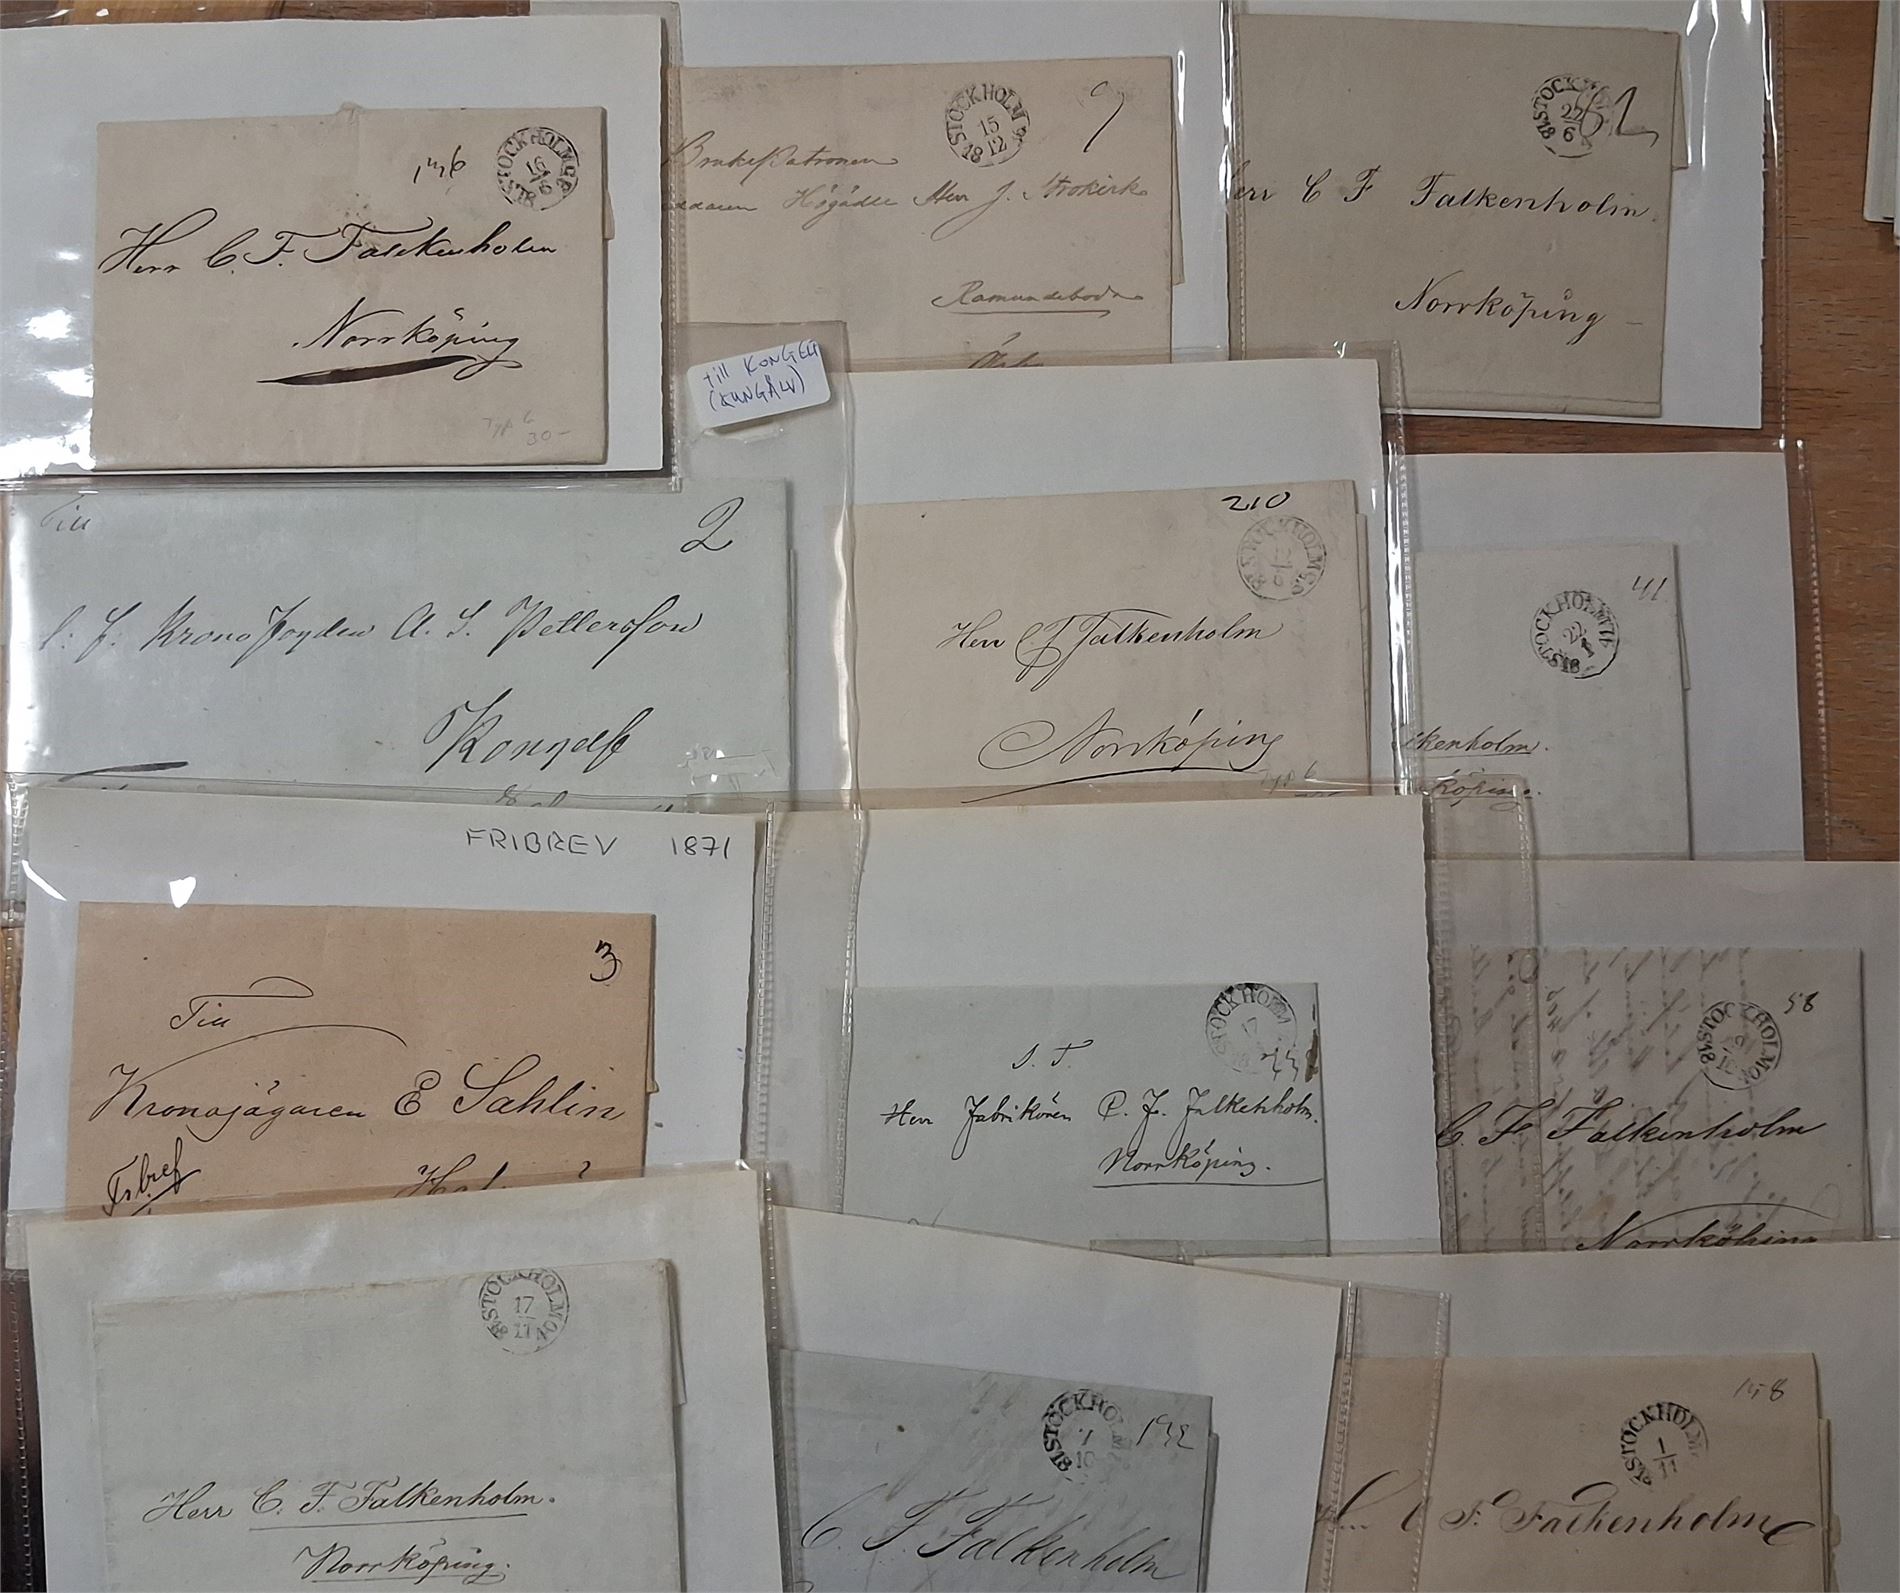 STOCKHOLM
Herr C. F. Falckenholm
Norrköping
Typ 6
30-
STOCKHOLM
15
12
18
9
Herr J. Strokirk
Ramundeboda
STOCKHOLM
22
6
62
Herr C F Falkenholm
Norrköping
till KONGELF
(KUNGÄLV)
Till
2
A. S. Pettersson
Kongelf
210
STOCKHOLM
Herr C F Falkenholm
Norrköping
Typ 6
41
STOCKHOLM
lkenholm.
köping.
FRIBREV 1871
3
Till
Kronojägaren E Sahlin
Fribref
STOCKHOLM
S. T.
Herr Fabrikören C. F. Falkenholm.
Norrköping.
58
STOCKHOLM
C. F. Falkenholm
Norrköping
STOCKHOLM
17
11
Herr C. F. Falkenholm.
Norrköping.
STOCKHOLM
7
10
132
C. F. Falkenholm
158
STOCKHOLM
1
11
C F. Falkenholm